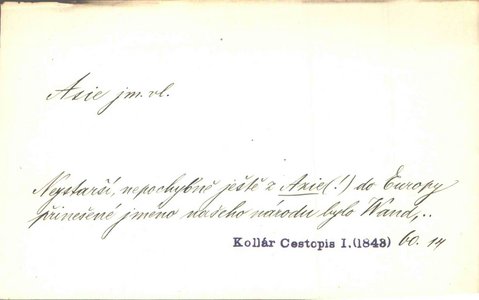 Asie jm. vl.
Nejstarší, nepochybně ještě z Azie(!) do Europy
přinešené jméno našeho národu bylo Wand,..
Kollár Cestopis I.(1843) 60. 14